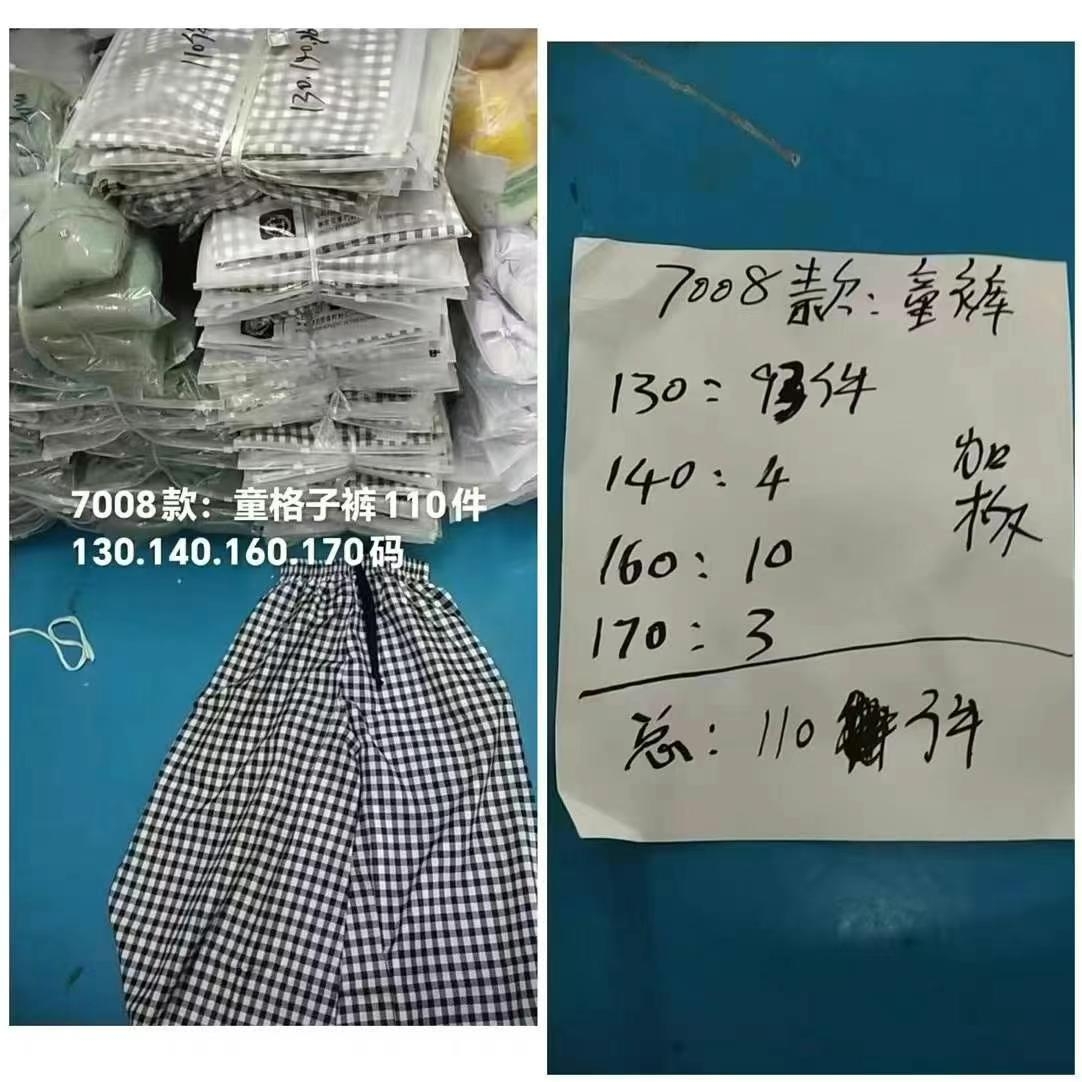 110件
130.140.16
7008款：童格子裤110件
130.140.160.170码
7008款：童裤
130：93件
140：4
160：10
170：3
加板
总：110件